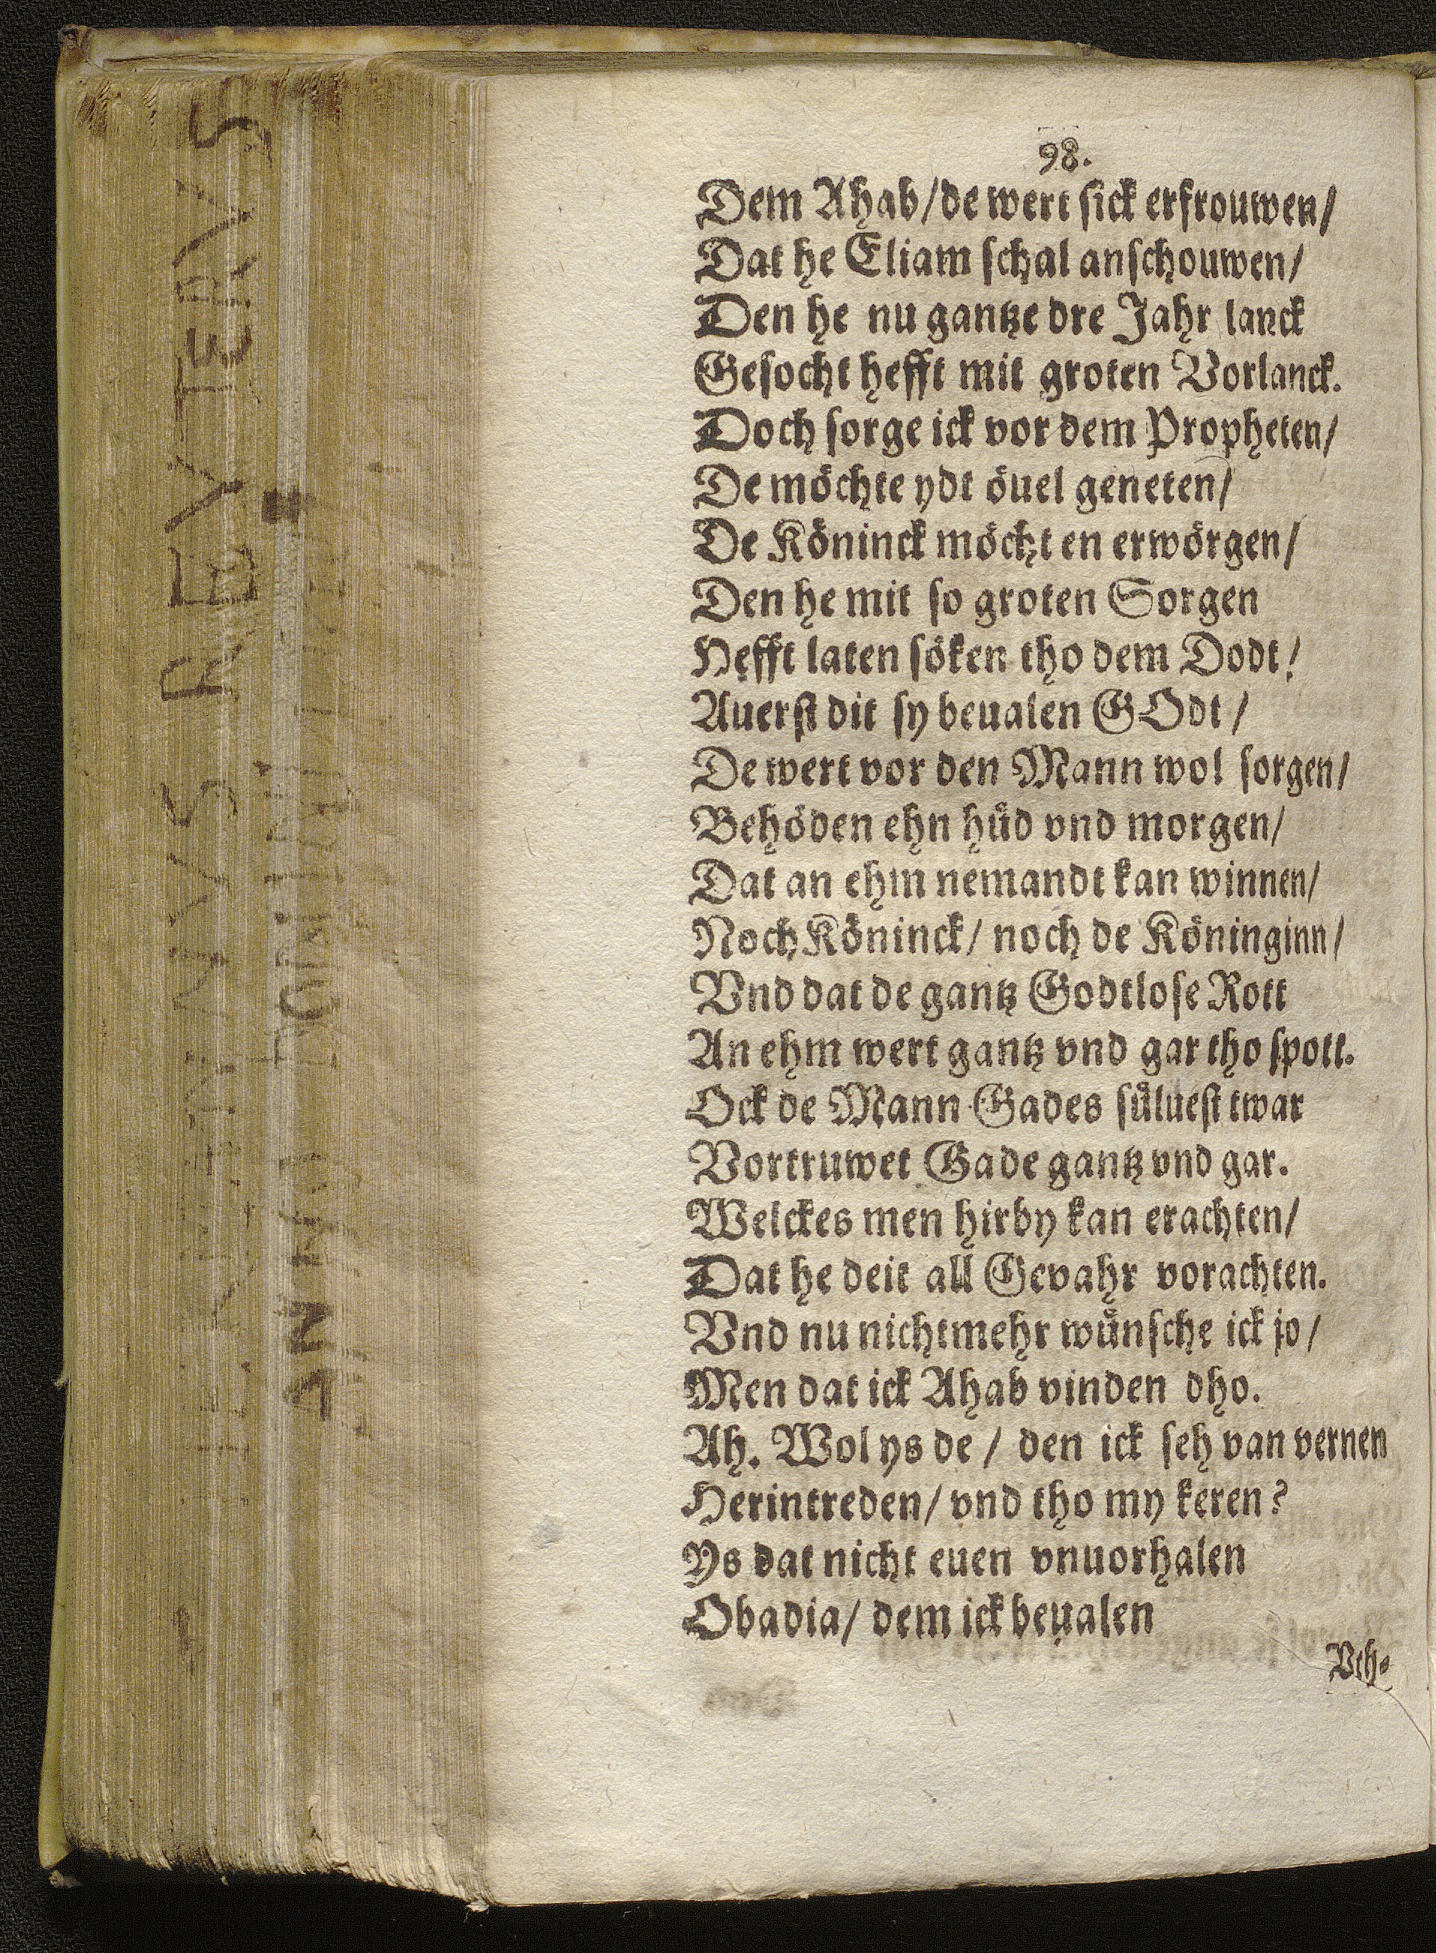 98.
Dem Ahab/de wert sick erfrouwen/
Dat he Eliam schal anschouwen/
Den he nu gantze dre Jahr lanck
Gesocht hefft mit groten Vorlanck.
Doch sorge ick vor dem Propheten/
De möchte ydt öuel geneten/
De Köninck möcht en erwörgen/
Den he mit so groten Sorgen
Hefft laten söken tho dem Dodt!
Auerst dit sy beualen GOdt/
De wert vor den Mann wol sorgen/
Behöden ehn hüd vnd morgen/
Dat an ehm nemandt kan winnen/
Noch Köninck/ noch de Köninginn/
Vnd dat de gantz Godtlose Rott
An ehm wert gantz vnd gar tho spott.
Ock de Mann Gades süluest twar
Vortruwet Gade gantz vnd gar.
Welckes men hirby kan erachten/
Dat he deit all Gevahr vorachten.
Vnd nu nichtmehr wünsche ick jo/
Men dat ick Ahab vinden dho.
Ah. Wol ys de/ den ick seh van vernen
Herintreden/ vnd tho my keren?
Ys dat nicht euen vnuorhalen
Obadia/ dem ick beualen
Vth-
REVTERVS